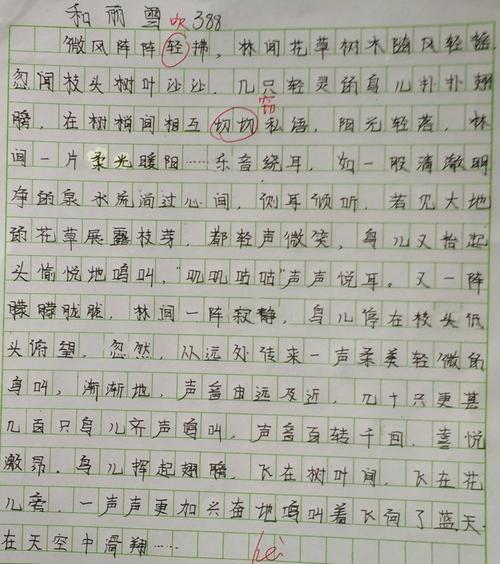 和丽雪 吹 388
微风阵阵轻拂，林间花草树木随风轻摇，
忽闻枝头树叶沙沙，几只轻灵的鸟儿扑扑翅
窃
膀，在树梢间相互切切私语，阳光轻落，林
间一片柔光暖阳……乐音绕耳，如一股清澈明
净的泉水流淌过心间，侧耳倾听，若见大地
的花草展露枝芽，都轻声微笑，鸟儿又抬起
头愉悦地鸣叫，“叽叽咕咕”声声悦耳。又一阵
朦朦胧胧，林间一阵寂静，鸟儿停在枝头低
头俯望，忽然，从远处传来一声柔美轻微的
鸟叫，渐渐地，声音由远及近，几十只更甚
几百只鸟儿齐声鸣叫，声音百转千回，喜悦
激昂。鸟儿挥起翅膀，飞在树叶间，飞在花
儿旁，一声声更加兴奋地鸣叫着飞向了蓝天
在天空中滑翔……